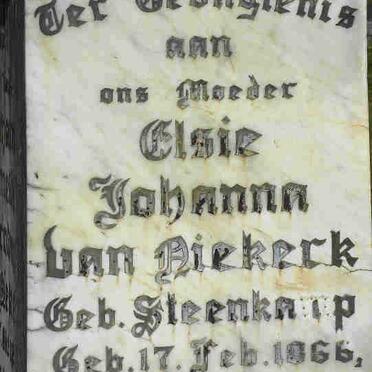 Ter Gedagtenis
aan
ons Moeder
Elsie
Johanna
van Niekerk
Geb. Steenkamp
Geb. 17. Feb. 1866,